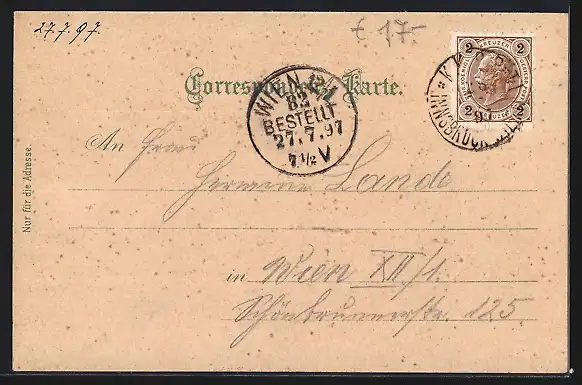 27.7.97.
€ 17.-
2 KREUZER 2
2 KREUZER 2
INNSBRUCK
Correspondenz-Karte.
WIEN
82
BESTELLT
27.7.97
7½ V
An Frau
Hermine Lande
in Wien XII/1.
Schönbrunnerstr. 125
Nur für die Adresse.